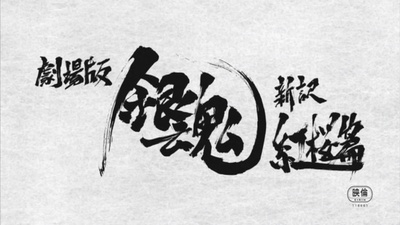 劇場版
銀魂
新訳
紅桜篇
映倫